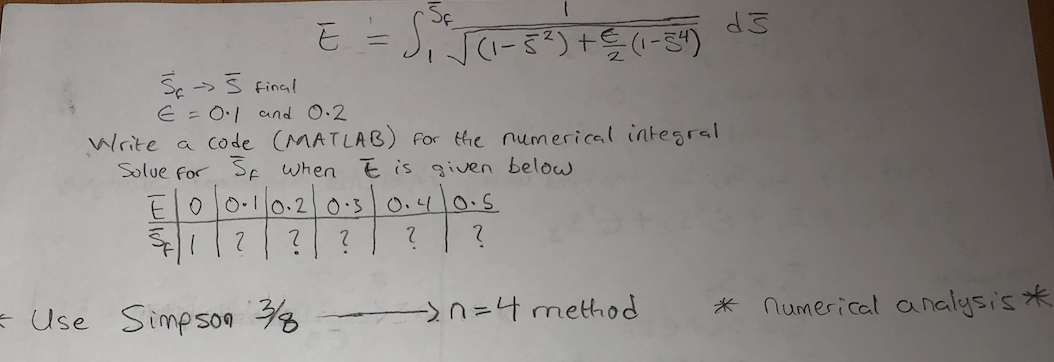 E̅ = ∫₁^S̅f 1/√((1-s̅²)+ϵ/2(1-s̅⁴)) ds̅
S̅f → S̅ final
ϵ = 0.1 and 0.2
Write a code (MATLAB) for the numerical integral
Solve for S̅f when E̅ is given below
E̅ | 0 | 0.1 | 0.2 | 0.3 | 0.4 | 0.5
S̅f | 1 | ? | ? | ? | ? | ?
Use Simpson 3/8 → n=4 method * numerical analysis *